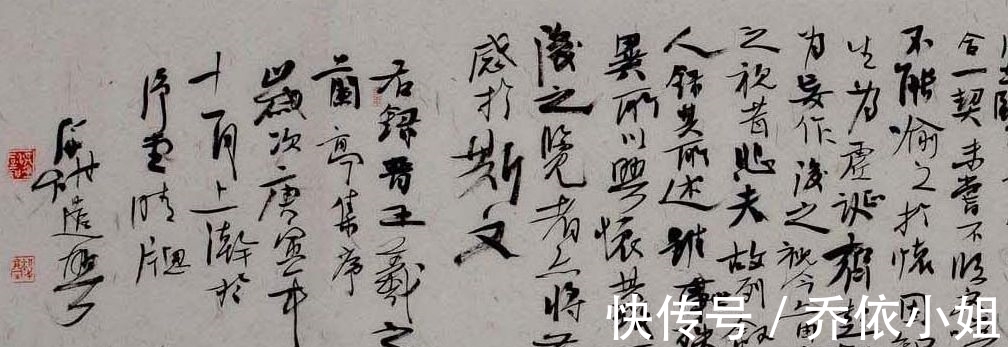 合一契未嘗不臨
不能喻之於懷固知
生為虛誕齊
為妄作後之視今
之視昔悲夫故列敘
人錄其所述雖
異所以興懷其
後之覽者亦將
感於斯文
右錄晉王羲之
蘭亭集序
歲次庚寅年
十一月上澣於
晴窗
快传号 / 乔依小姐